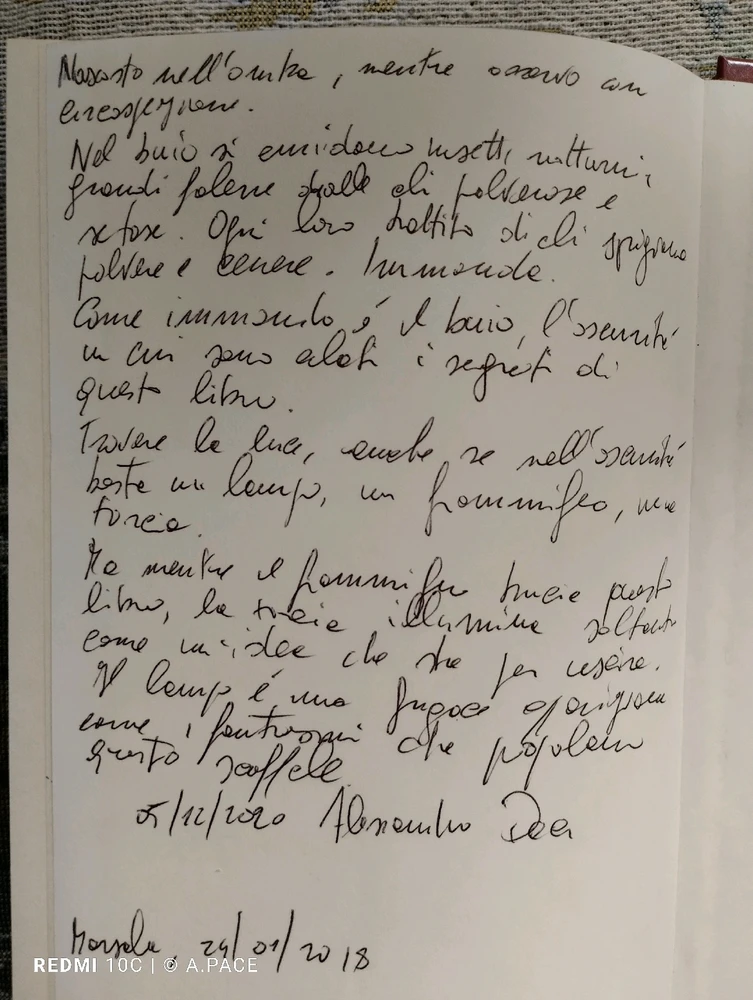 Nascosto nell'ombra, mentre osservo con
circospezione.
Nel buio si annidano insetti notturni,
grandi falene dalle ali polverose e
setose. Ogni loro battito di ali sprigiona
polvere e cenere. Immonda.
Come immondo è il buio, l'oscurità
in cui sono celati i segreti di
questo libro.
Trovare la luce, anche se nell'oscurità
basta un lampo, un fiammifero, una
torcia.
Ma mentre il fiammifero brucia questo
libro, la torcia illumina soltanto
come un'idea che sta per uscire.
Il lampo è una fugace apparizione
come i fantasmi che popolano
questo scaffale.
05/12/2020 Alessandro
Marsala, 29/01/2018
REDMI 10C | © A.PACE